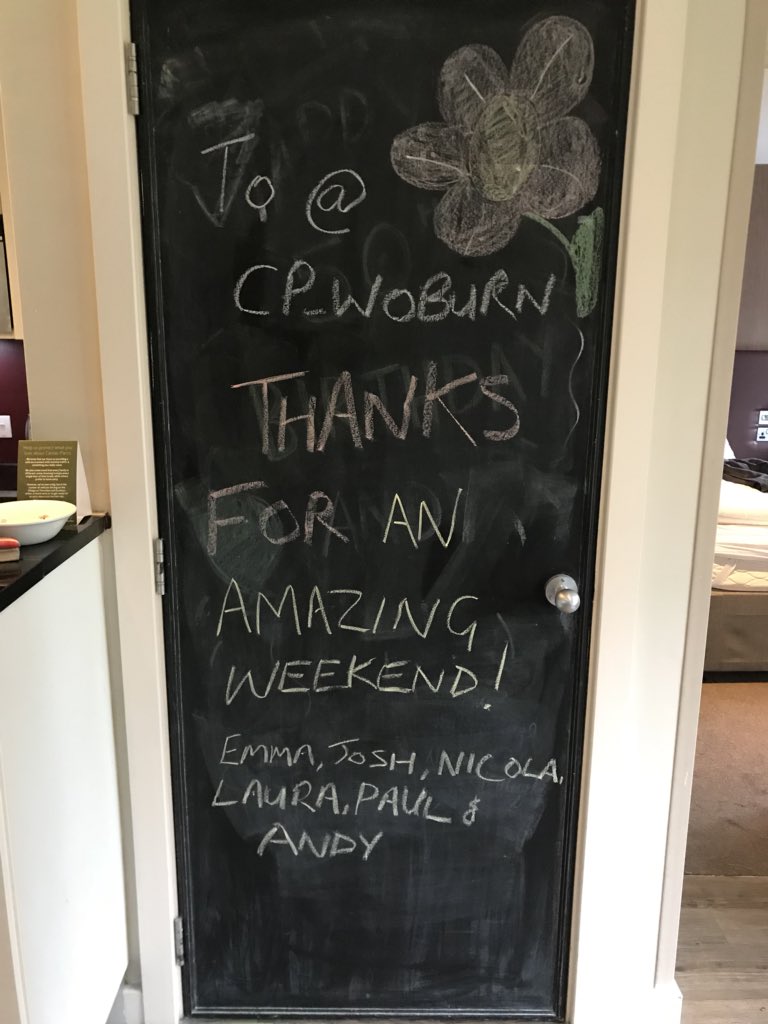 To @
CP_WOBURN
THANKS
FOR AN
AMAZING
WEEKEND!
EMMA, JOSH, NICOLA,
LAURA, PAUL &
ANDY